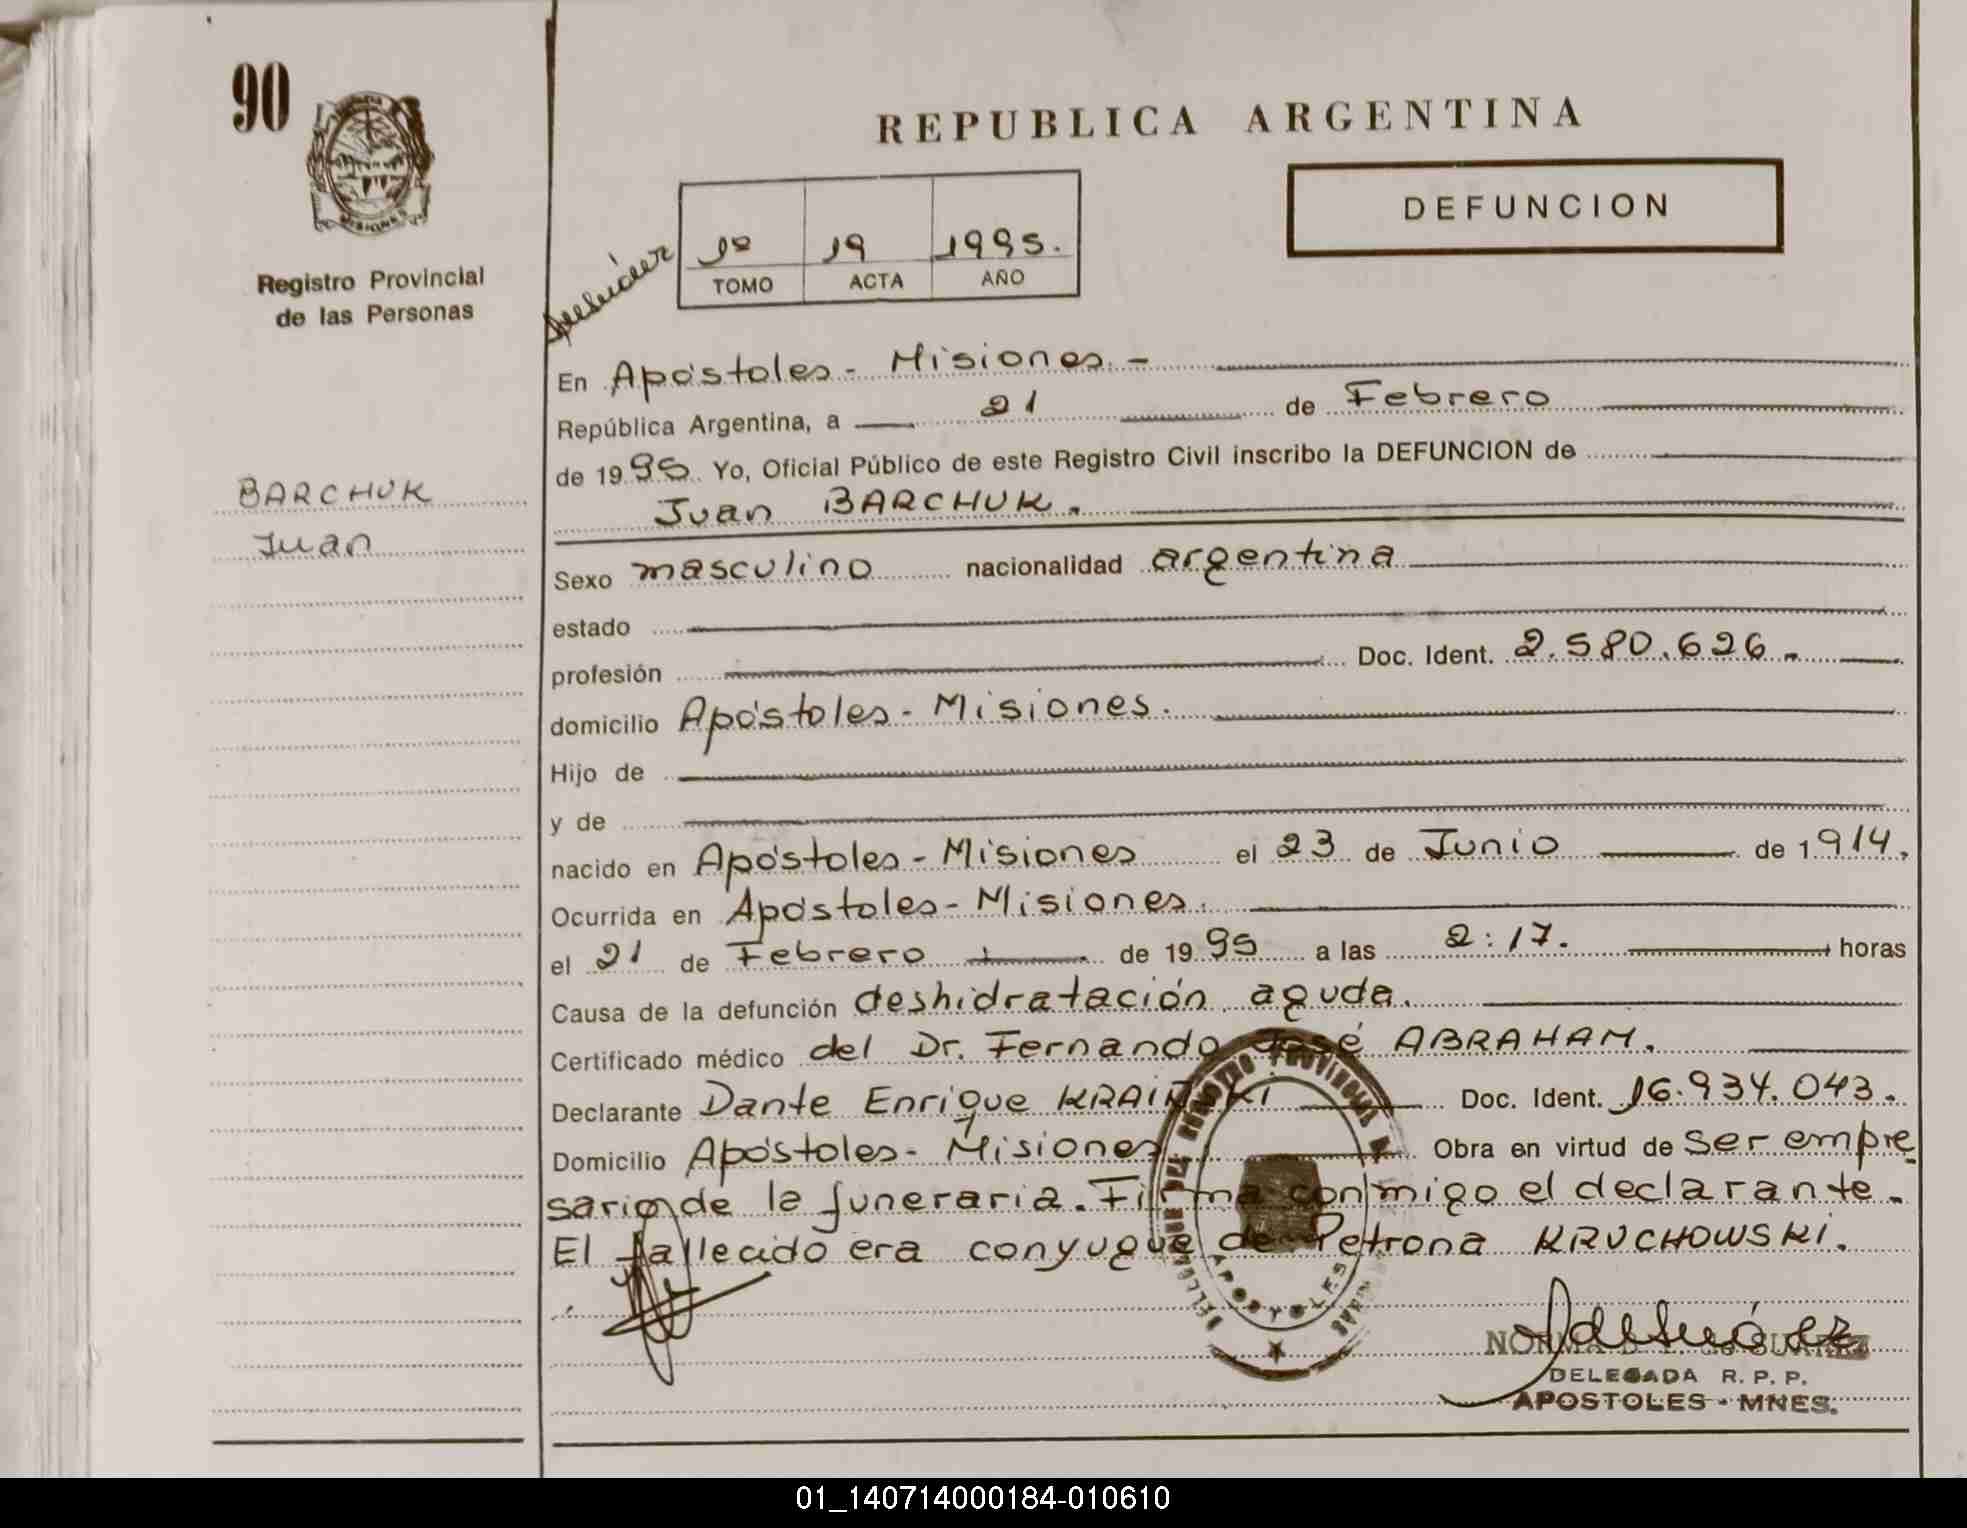 90
MISIONES
Registro Provincial
de las Personas
BARCHUK
Juan
REPUBLICA ARGENTINA
DEFUNCION
1º 19 1995.
TOMO ACTA AÑO
En Apóstoles - Misiones. -
República Argentina, a 21 de Febrero
de 1995 Yo, Oficial Público de este Registro Civil inscribo la DEFUNCION de
Juan BARCHUK.
Sexo masculino nacionalidad argentina
estado
profesión Doc. Ident. 2.580.626.-
domicilio Apóstoles - Misiones.
Hijo de
y de
nacido en Apóstoles - Misiones el 23 de Junio de 1914.
Ocurrida en Apóstoles - Misiones.
el 21 de Febrero de 1995 a las 2:17. horas
Causa de la defunción deshidratación aguda.
Certificado médico del Dr. Fernando José ABRAHAM.
Declarante Dante Enrique Doc. Ident. 16.934.043.
Domicilio Apóstoles - Misiones Obra en virtud de ser empre
sario de la funeraria. Firma conmigo el declarante.
El fallecido era conyugue de Petrona KRUCHOWSKI.
APOSTOLES
NORMA SUAREZ
DELEGADA R. P. P.
APOSTOLES - MNES.
01_140714000184-010610